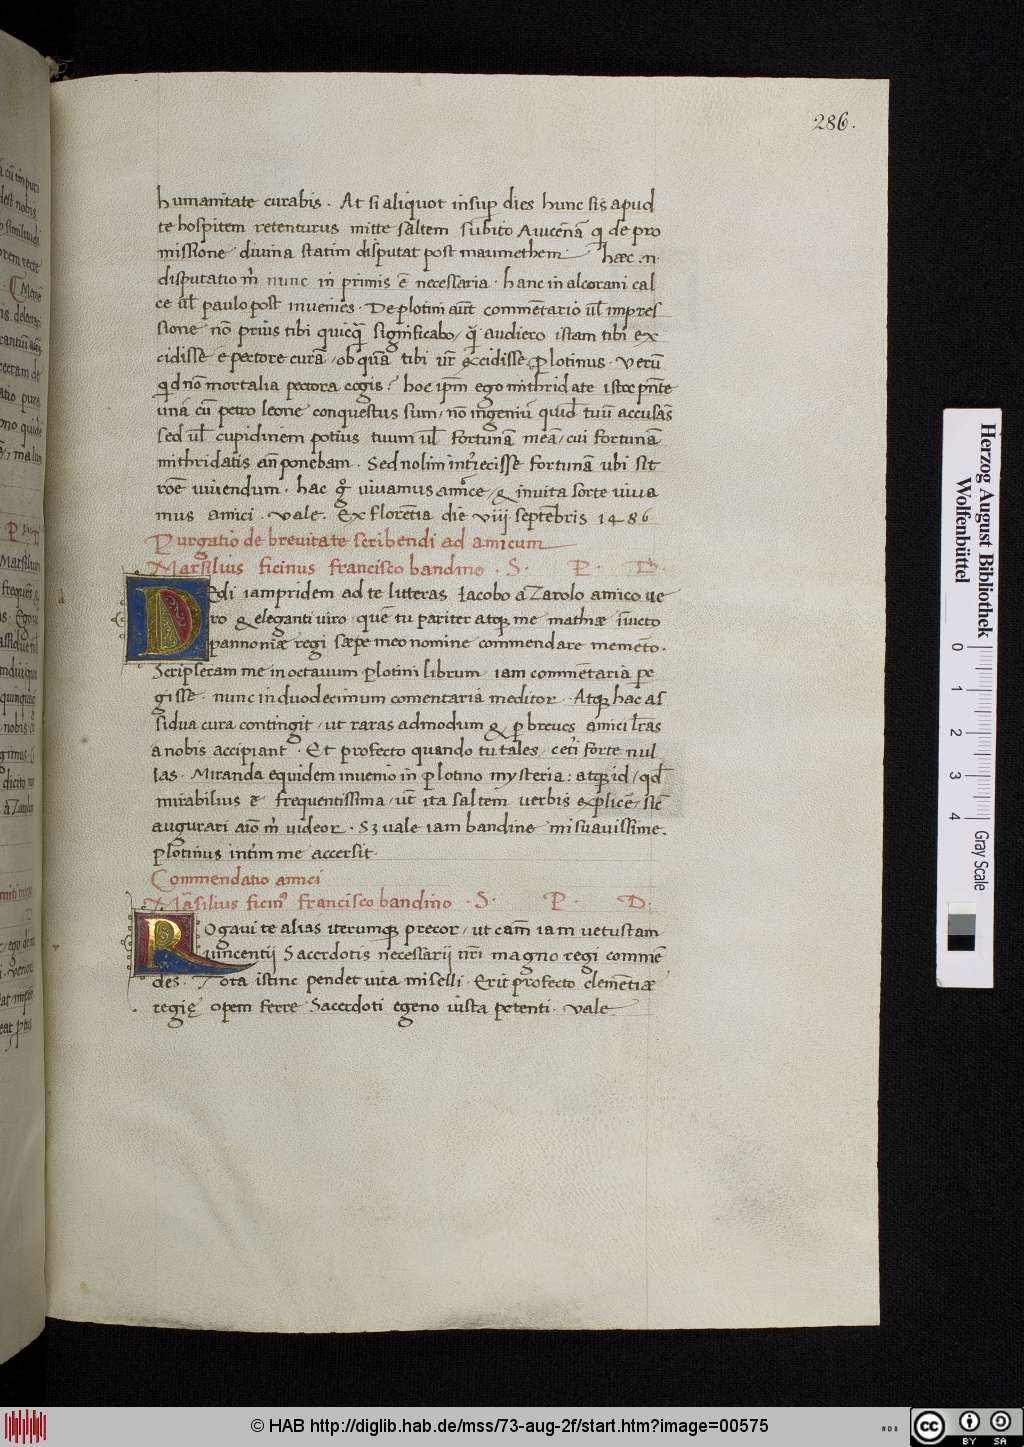 286.
humanitate curabis. At si aliquot insup̄ dies hunc sis apud
te hospitem retenturus mitte saltem subito Auicēnā q̄ de pro
missione diuina statim disputat post maumethem. haec .n.
disputatio m̄ nunc in primis ē necessaria. hanc in alcorani cal
ce ūl paulo post inuenies. De plotini aūt commentario ūl impres
sione nō prius tibi quicq̄ significabo / q̄ audiero istam tibi ex
cidisse e pectore curā / ob quā tibi ūr excidisse plotinus. Verū
qd nō mortalia pectora cogis? hoc ip̄m ego mithridate istoc pn̄te
unā cū petro leone conquestus sum / nō ingeniū quid tuū accusās
sed ūl cupidinem potius tuum ūl fortunā meā / cui fortunā
mithridatis an̄ponebam. Sed nolim int̄iecisse fortunā ubi sit
rōe uiuendum. hac g° uiuamus amice / & inuita sorte uiua
mus amici. Vale. Ex florētia die viij septēbris 1486
Purgatio de breuitate scribendi ad amicum
Marsilius ficinus francisco bandino. S. P. D.
DEdi iampridem ad te litteras Iacobo a Zarolo amico ue
ro & eleganti uiro / quē tu pariter atq; me mathiae iuicto
pannoniae regi saepe meo nomine commendare memēto.
Scripseram me in octauum plotini librum iam commētaria pe
gisse. nunc in duodecimum comentaria meditor. Atq; hac as
sidua cura contingit / ut raras admodum & p breues amici lr̄as
a nobis accipiant. Et profecto quando tu tales / cet̄i forte nul
las. Miranda equidem inuenio in plotino mysteria: atq; id / qd̄
mirabilius ē frequentissima / ut ita saltem uerbis explicē / siē
augurari aīo m̄ uideor. S3 uale iam bandine mi suauissime.
plotinus int̄im me accersit.
Commendatio amici
Marsilius ficin⁹ francisco bandino. S. P. D:
ROgaui te alias iterumq; precor / ut cām iam uetustam
uincentij Sacerdotis necessarij nr̄i magno regi commē
des. Tota istinc pendet uita miselli. Erit profecto clemētiae
regię opem ferre Sacerdoti egeno iusta petenti. Vale
Herzog August Bibliothek
Wolfenbüttel
0 1 2 3 4
Gray Scale
© HAB http://diglib.hab.de/mss/73-aug-2f/start.htm?image=00575
WDB
cc BY SA